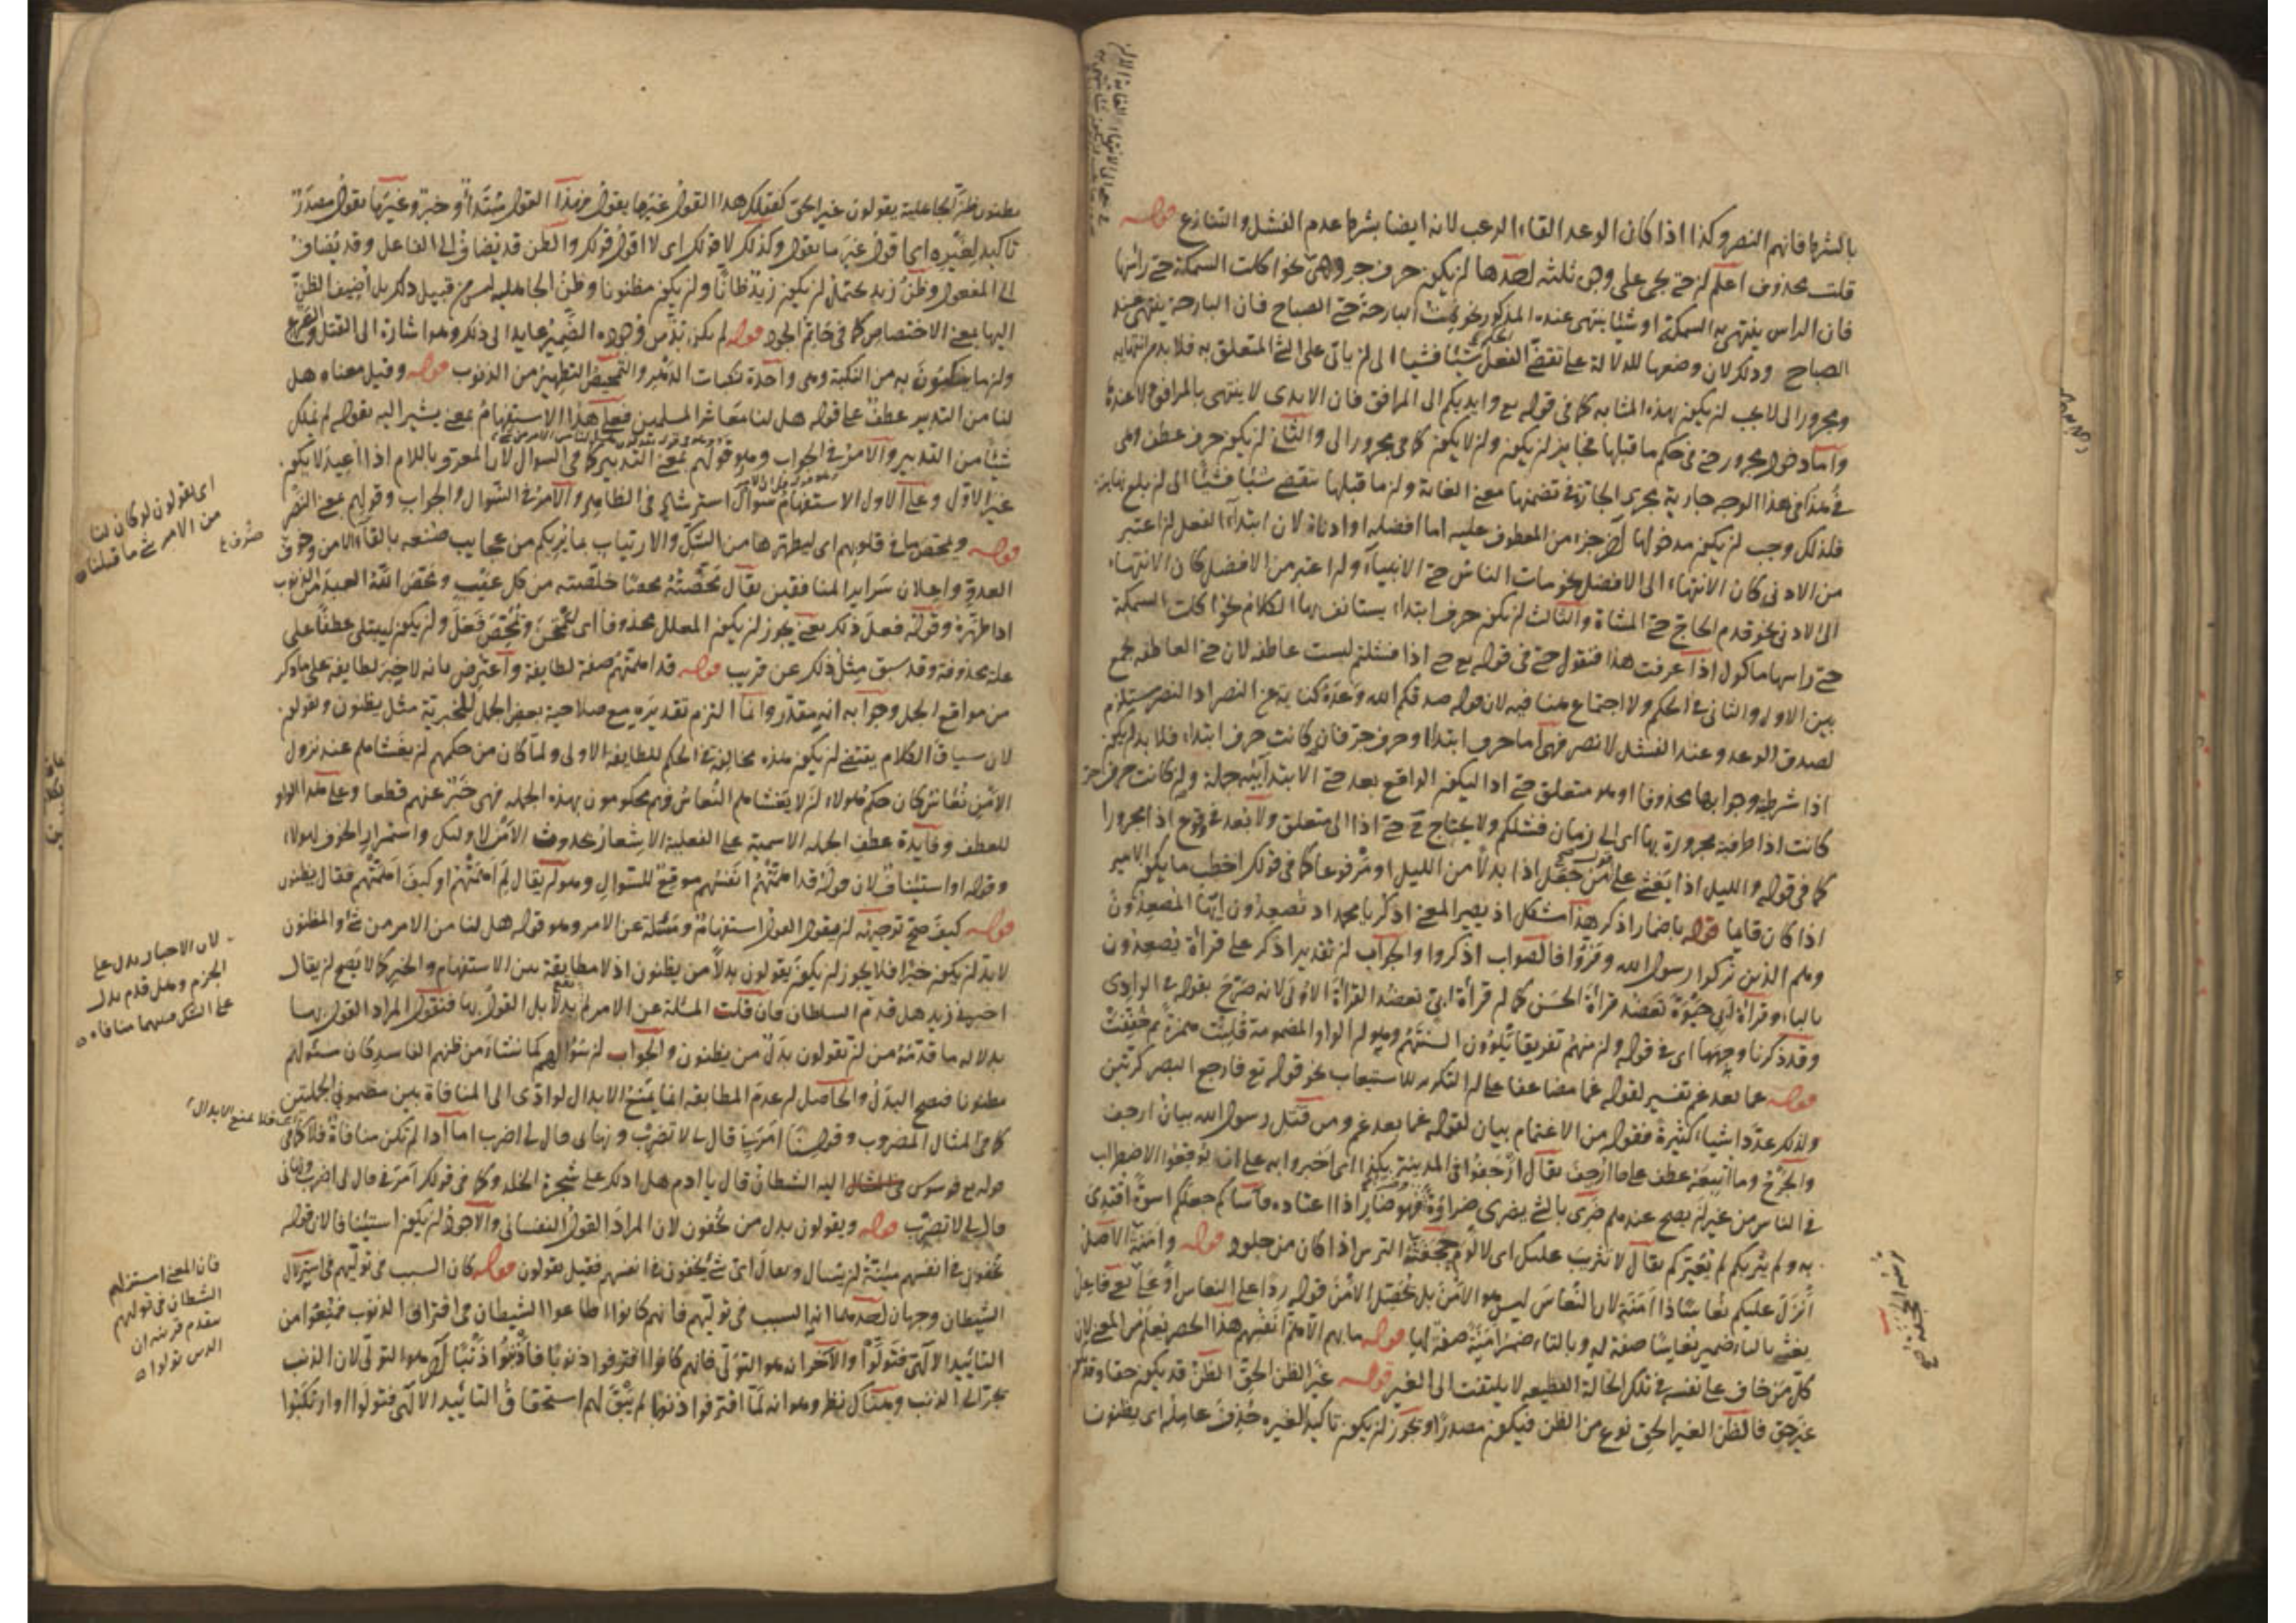 بالشرط فاتهم النصر وكذا اذا كان الوعد القاء الرعب لانه ايضا بشرط عدم الفشل والتنازع قوله
قلت محذوف اعلم ان حتى يجئ على وجوه ثلثه احدها ان يكون حرف جر وهي نحو اكلت السمكة حتى رأسها
فان الرأس ينتهى به السمكة او شيئا ينتهى عنده المذكور نحو نمت البارحة حتى الصباح فان البارحة ينتهى عند
الصباح وذلك لان وضعها للدلالة على تقضى الفعل شيئا فشيئا الى ان ياتى على الشئ المتعلق به فلا بد من انتهائه
ومجرور الى لا يجب ان يكون بهذه المثابه كما فى قوله تع وايديكم الى المرافق فان الايدى لا ينتهى بالمرافق ولا عندها
واما دخول مجرور حتى فى حكم ما قبلها فجائز ان يكون وان لا يكون كما فى مجرور الى والثانى ان يكون حرف عطف وهى
فى هذا الوجه جارية مجرى الجارة فى تضمنها معنى الغاية وان ما قبلها ينقضى شيئا فشيئا الى ان يبلغ نهايته
فلذلك وجب ان يكون مدخولها آخر جزء من المعطوف عليه اما افضله او ادناه لان ابتداء الفعل ان اعتبر
من الادنى كان الانتهاء الى الافضل نحو مات الناس حتى الانبياء وان اعتبر من الافضل كان الانتهاء
الى الادنى نحو قدم الحاج حتى المشاة والثالث ان يكون حرف ابتداء يستانف بها الكلام نحو اكلت السمكة
حتى راسها ماكول اذا عرفت هذا فنقول حتى فى قوله تع حتى اذا فشلتم ليست عاطفه لان حتى العاطفه يجمع
بين الاول والثانى فى الحكم ولا اجتماع هنا فيه لان قوله صدقكم الله وعده كناية عن النصر اذ النصر يستلزم
لصدق الوعد وعند الفشل لا نصر فهى اما حرف ابتداء او حرف جر فان كانت حرف ابتداء فلا بد ان يكون
اذا شرطية وجوابها محذوفا او هو متعلق حتى اذا ليكون الواقع بعد حتى الابتدائيه جملة وان كانت حرف جر
كانت اذا ظرفية مجرورة بها اى الى زمان فشلكم ولا يحتاج حتى اذا الى متعلق ولا بعد فى وقوع اذا مجرورا
كما فى قوله والليل اذا يغشى على من جعل اذا بدلا من الليل او مرفوعا كما فى قولك اخطب ما يكون الامير
اذا كان قايما قوله باضمار اذكر هذا مشكل اذ يصير المعنى اذكر يا محمد اذ تصعدون ايها المصعدون
وهم الذين تركوا رسول الله وفروا فالصواب اذكروا والجواب ان تقدير اذكر على قراءة يصعدون
بالياء وقراءة ابى حيوة تعضد قراءة الحسن كما ان قراءة ابى تعضد القراءة الاولى لانه صرح بقوله فى الوادى
وقد ذكرنا وجهها اى فى قوله وان منهم لفريقا يلوون السنتهم وهو ان الواو المضمومة قلبت همزة ثم خففت
قوله غما بعد غم تفسير لقوله غما مضاعفا على ان التكرير للاستيعاب نحو قوله تع فارجع البصر كرتين
ولذلك عدد اشياء كثيرة فقوله من الاغتمام بيان لقوله غما بعد غم ومن قتل رسول الله بيان ارجف
والجرح وما اتبعه عطف على ما ارجف يقال ارجفوا فى المدينة بكذا اى اخبروا به على ان يوقعوا الاضطراب
فى الناس من غير ان يصح عندهم ضرى بالشئ يضرى ضراوة فهو ضار اذا اعتاده فآساكم جعلكم اسوة اقتدى
به ولم يثربكم لم يعيركم يقال لا تثريب عليك اى لا لوم الترس اذا كان من جلود قوله وامنة الاصل
انزل عليكم نعاسا ذا امنة لان النعاس ليس هو الامن بل يحصل الامن قوله ردا على النعاس او على فاعل
يغشى بالياء ضمير نعاسا صفة له وبالتاء ضمير امنة صفة لها قوله ما بهم الا هم انفسهم هذا الحصر يعلم من المعنى لان
كل من خاف على نفسه فى تلك الحالة الفظيعه لا يلتفت الى الغير قوله غير الظن الحق الظن قد يكون حقا وقد يكون
غير حق فالظن الغير الحق نوع من الظن فيكون مصدرا ويجوز ان يكون تاكيدا لغيره حذف عامله اى يظنون
يظنون ظن الجاهلية يقولون غير الحق كقولك هذا القول غير ما يقول فهذا القول مبتدأ وخبر وغير ما يقول مصدر
تاكيد لغيره اى اقول غير ما يقول وكذلك لا قولك اى لا اقول قولك والظن قد يضاف الى الفاعل وقد يضاف
الى المفعول وظن زيد يحتمل ان يكون زيد ظانا وان يكون مظنونا وظن الجاهليه ليس من قبيل ذلك بل اضيف الظن
اليها بمعنى الاختصاص كما فى حاتم الجود قوله لم يكن بد من وجوده الضمير عايد الى ذلك وهو اشارة الى القتل
وان ما ينكبون به من النكبة وهى واحدة نكبات الدهر والتمحيص التطهير من الذنوب قوله وقيل معناه هل
لنا من التدبير عطف على قوله هل لنا معاشر المسلمين فعلى هذا الاستفهام بمعنى يشير اليه بقوله لم نملك
شيئا من التدبير والامر فى الجواب وهو قولهم بمعنى التدبير كما فى السوال لان المعرف باللام اذا اعيد لا يكون
غير الاول وعلى الاول الاستفهام سوال استرشاد فى الظاهر والامر فى السوال والجواب وقولهم بمعنى النصر
قوله وليمحص ما فى قلوبهم اى ليطهرها من الشك والارتياب بما يريكم من عجايب صنعه بالقاء الامن وصرف
العدو واعلان سراير المنافقين يقال محصته محصا خلصته من كل عيب ومحص الله العبد من الذنوب
اذا طهره وقوله فعل ذلك يعنى يجوز ان يكون المعلل محذوفا اى ليمتحن وليمحص فعل وان يكون ليبتلى عطفا على
علة محذوفة وقد سبق مثل ذلك عن قريب قوله قد اهمتهم صفة لطايفة واعترض بانه لا خبر لطايفة على ما ذكر
من مواقع الجمل وجوابه انه مقدر وانما التزم تقديره مع صلاحية بعض الجمل للخبرية مثل يظنون ويقولون
لان سياق الكلام يقتضى ان يكون هذه مخالفة فى الحكم للطايفة الاولى ولما كان من حكمهم ان يغشاهم عند نزول
الامن نعاس كان حكم هولاء ان لا يغشاهم النعاس فهم محكومون بهذه الجمله فهى خبر عنهم قطعا وعلى هذا الواو
للعطف وفايدة عطف الجمله الاسمية على الفعلية الاشعار بحدوث الامن لاولئك واستمرار الخوف لهولاء
وقوله او استيناف لان قوله قد اهمتهم انفسهم موقع للسؤال وهو ان يقال لم اهمتهم او كيف اهمتهم فقال يظنون
قوله كيف صح توجيهه ان يقول القول استفهام ومسئلة عن الامر وهو قوله هل لنا من الامر من شئ والمظنون
لابد ان يكون خبرا فلا يجوز ان يكون يقولون بدلا من يظنون اذ لا مطابقة بين الاستفهام والخبر كما لا يصح ان يقال
اخبرنى زيد هل قدم السلطان فان قلت المسئلة عن الامر لم يقع بدلا بل القول بها فنقول المراد القول بها
بدلاله ما قدمه من ان يقولون بدل من يظنون والجواب ان سؤالهم كما نشأ من ظنهم الفاسد كان سئولهم
مظنونا فصح البدل والحاصل ان عدم المطابقه انما يمنع الابدال لو ادى الى المنافاة بين مضمونى الجملتين
كما فى المثال المضروب وقولنا امرنى قال لى لا تضرب ونهانى قال لى اضرب اما اذا لم تكن منافاة فلا كما فى
قوله تع فوسوس اليه الشيطان قال يا ادم هل ادلك على شجرة الخلد وكما فى قولك امرنى قال لى اضرب ونهانى
قال لى لا تضرب قوله ويقولون بدل من يخفون لان المراد القول النفسانى والاجود ان يكون استينافا لان قوله
يخفون فى انفسهم مئنة ان يسال ويقال اى شئ يخفون فى انفسهم فقيل يقولون قوله كان السبب فى توليهم استزلال
الشيطان وجهان احدهما انه السبب فى توليهم فانهم كانوا اطاعوا الشيطان فى اقتراف الذنوب فمنعوا من
التاييد الالهى فتولوا والاخر انه هو التولى فانهم كانوا اقترفوا ذنوبا فاذنبوا ذنبا آخر هو التولى لان الذنب
يجر الى الذنب وهناك نظر وهو انه لما اقترفوا ذنوبا لم يبق لهم استحقاق التاييد الالهى فتولوا وارتكبوا
اى يقولون لو كان لنا
من الامر شئ ما قتلنا
لان الاخبار يدل على
الجزم وهل قدم يدل
على الشك فبينهما منافاة
فلا يمنع الابدال
فان المعنى استزلهم
الشيطان فى توليهم
الذين تولوا